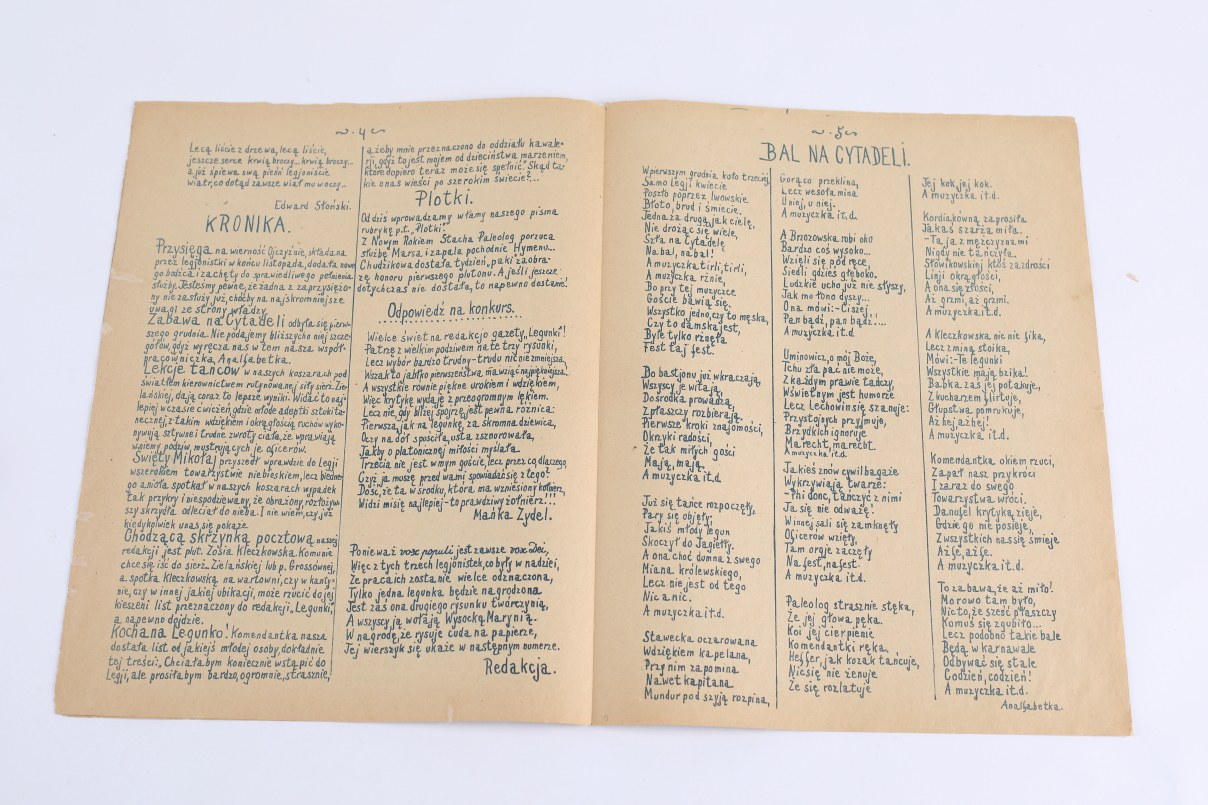 ~ 4 ~
Lecą liście z drzewa, lecą liście,
jeszcze serce krwią broczy... krwią broczy...
a już śpiewa swą pieśń legjoniście
wiatr, co dotąd zawsze wiał mu w oczy...
Edward Słoński.
KRONIKA.
Przysięga na wierność Ojczyźnie, składana
przez legjonistki w końcu listopada, dodała nowe-
go bodźca i zachęty do sprawiedliwego pełnienia
służby. Jesteśmy pewne, że żadna z zaprzysiężo-
ny nie zasłuży już choćby na najskromniejsze
uwagi ze strony władzy.
Zabawa na Cytadeli odbyła się pierw-
szego grudnia. Nie podajemy bliższych niej szcze-
gółów, gdyż wyręcza nas w tem nasza współ-
pracowniczka, Analfabetka.
Lekcje tańców w naszych koszarach pod
światłem kierownictwem rutynowanej siły sierż. Zie-
lańskiej, dają coraz to lepsze wyniki. Widać to naj-
lepiej w czasie ćwiczeń gdzie młode adeptki sztuki ta-
necznej, z takim wdziękiem i okrągłością ruchów wyko-
nywują sztywne i trudne zwroty ciała, że wprawiają
w niemy podziw mustrujących je oficerów.
Święty Mikołaj przyszedł wprawdzie do Legji
w szerokiem towarzystwie niebieskiem, lecz biedne-
go anioła spotkał w naszych koszarach wypadek
tak przykry i niespodziewany, że obrażony rozłożyw-
szy skrzydła odleciał do nieba. I nie wiem, czy już
kiedykolwiek u nas się pokaże.
Chodzącą skrzynką pocztową naszej
redakcji jest plut. Zosia Kleczkowska. Komu nie
chce się iść do sierż. Zielańskiej lub p. Grossównej,
a spotka Kleczkowską na wartowni, czy w kanty-
nie, czy w innej jakiej ubikacji, może rzucić do jej
kieszeni list przeznaczony do redakcji „Legunki”,
a napewno dojdzie.
Kochana Legunko! Komendantka nasza
dostała list od jakiejś młodej osoby, dokładnie
tej treści: „Chciałabym koniecznie wstąpić do
Legji, ale prosiłabym bardzo, ogromnie, strasznie,
ażeby mnie przeznaczono do oddziału kawale-
rji, gdyż to jest mojem od dzieciństwa marzeniem,
które dopiero teraz może się spełnić.” Skąd ta-
kie o nas wieści po szerokim świecie?...
Plotki.
Od dziś wprowadzamy w łamy naszego pisma
rubrykę p.t. „Plotki”.
Z Nowym Rokiem Stacha Paleolog porzuca
służbę Marsa i zapala pochodnie Hymenu...
Chudzikowa dostała tydzień paki za obra-
zę honoru pierwszego plutonu. A jeśli jeszcze
dotychczas nie dostała, to napewno dostanie!
Odpowiedź na konkurs.
Wielce świetna redakcjo gazety „Legunki”!
Patrzę z wielkim podziwem na te trzy rysunki,
Lecz wybór bardzo trudny - trudu nic nie zmniejsza,
Wszak to jabłko pierwszeństwa ma wziąć najpiękniejsza.
A wszystkie równie piękne urokiem i wdziękiem,
Więc krytykę wydaję z przeogromnym lękiem.
Lecz nie, gdy bliżej spojrzę jest pewna różnica:
Pierwsza, jak na legunkę, za skromna dziewica,
Oczy na dół spuściła, usta zsznurowała,
Jakby o platonicznej miłości myślała.
Trzecia nie jest w mym guście, lecz przez co dlaczego,
Czyż ja muszę przed wami spowiadać się z tego?
Dość, że ta w środku, która ma wzniesiony kołnierz,
Widzi mi się najlepiej - to prawdziwy żołnierz!!!
Mańka Żydel.
Ponieważ vox populi jest zawsze vox dei,
Więc z tych trzech legjonistek, co były w nadziei,
Że praca ich zostanie wielce odznaczona,
Tylko jedna legunka będzie nagrodzona.
Jest zaś ona drugiego rysunku twórczynią,
A wszyscy ją wołają Wysocką Marynią.
W nagrodę, że rysuje cuda na papierze,
Jej wierszyk się ukaże w następnym numerze.
Redakcja.
~ 5 ~
BAL NA CYTADELI.
W pierwszym grudnia koło trzeciej,
Samo legji kwiecie
Poszło poprzez lwowskie
Błoto, brud i śmiecie.
Jedna za drugą, jak cielę,
Nie drożąc się wiele,
Szła na Cytadelę
Na bal, na bal!
A muzyczka tirli, tirli,
A muzyczka rżnie,
Bo przy tej muzyczce
Goście bawią się.
Wszystko jedno, czy to męska,
Czy to damska jest,
Byle tylko rżnęła
Fest taj fest.
Do bastjonu już wkraczają,
Wszyscy je witają,
Do środka prowadzą,
Z płaszczy rozbierają.
Pierwsze kroki znajomości,
Okrzyki radości,
Że tak miłych gości
Mają, mają.
A muzyczka it.d.
Już się tańce rozpoczęły,
Pary się objęły,
Jakiś młody legun
Skoczył do Jagiełły.
A ona choć dumna z swego
Miana królewskiego,
Lecz nie jest od tego
Nic a nic.
A muzyczka it.d.
Stawecka oczarowana
Wdziękiem kapelana,
Przy nim zapomina
Nawet kapitana
Mundur pod szyją rozpina,
Gorąco przeklina,
Lecz wesoła mina
U niej, u niej.
A muzyczka it.d.
A Brzozowska robi oko
Bardzo coś wysoko...
Wzięli się pod ręce,
Siedli gdzieś głęboko.
Ludzkie ucho już nie słyszy,
Jak mełono dyszy...
Ona mówi: - Ciszej
Pan bądź, pan bądź!...
A muzyczka it.d.
Uminowicz, o mój Boże,
Tchu złapać nie może,
Z każdym prawie tańczy,
W świetnym jest humorze
Lecz Lechowin się szanuje:
Przystojnych przyjmuje,
Brzydkich ignoruje
Ma recht, ma recht.
A muzyczka it.d.
Jakieś znów cywilbagaże
Wykrzywiają twarze:
- Phi donc, tańczyć z nimi
Ja się nie odważę!
W innej sali się zamknęły
Oficerów wzięły,
Tam orgje zaczęły
Na fest, na fest
A muzyczka it.d.
Paleolog strasznie stęka,
Że jej głowa pęka.
Koi jej cierpienie
Komendantki ręka,
Heffer, jak kozak tańcuje,
Nic się nie żenuje
Że się rozlatuje
Jej kok, jej kok.
A muzyczka it.d.
Kordiakówną zaprosiła
Jakaś szarża miła.
- Ta ja z mężczyznami
Nigdy nie tańczyła.
Słowikowskiej ktoś zazdrości
Linji okrągłości,
A ona się złości,
Aż grzmi, aż grzmi.
A muzyczka it.d.
A Kleczkowska nic nie fika,
Lecz z miną stoika,
Mówi: - Te legunki
Wszystkie mają bzika!
Babka zaś jej potakuje,
Z kucharzem flirtuje,
Głupstwa, pomrukuje,
Aż hej, aż hej!
A muzyczka it.d.
Komendantka okiem rzuci,
Zapał nasz przykróci
I zaraz do swego
Towarzystwa wróci.
Danysel krytyką zieje,
Gdzie go nie posieje,
Z wszystkich nas się śmieje
Aż fe, aż fe.
A muzyczka it.d.
To zabawa, że aż miło!
Morowo tam było,
Nic to, że sześć płaszczy
Komuś się zgubiło...
Lecz podobno takie bale
Będą w karnawale
Odbywać się stale
Codzień, codzień!
A muzyczka it.d.
Analfabetka.